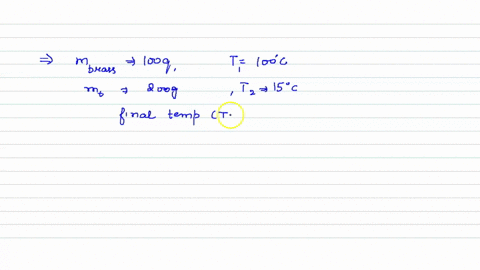 ⇒ m brass ⇒ 100g, T₁ = 100°C
m ⇒ 200g , T₂ ⇒ 15°C
final temp (T.